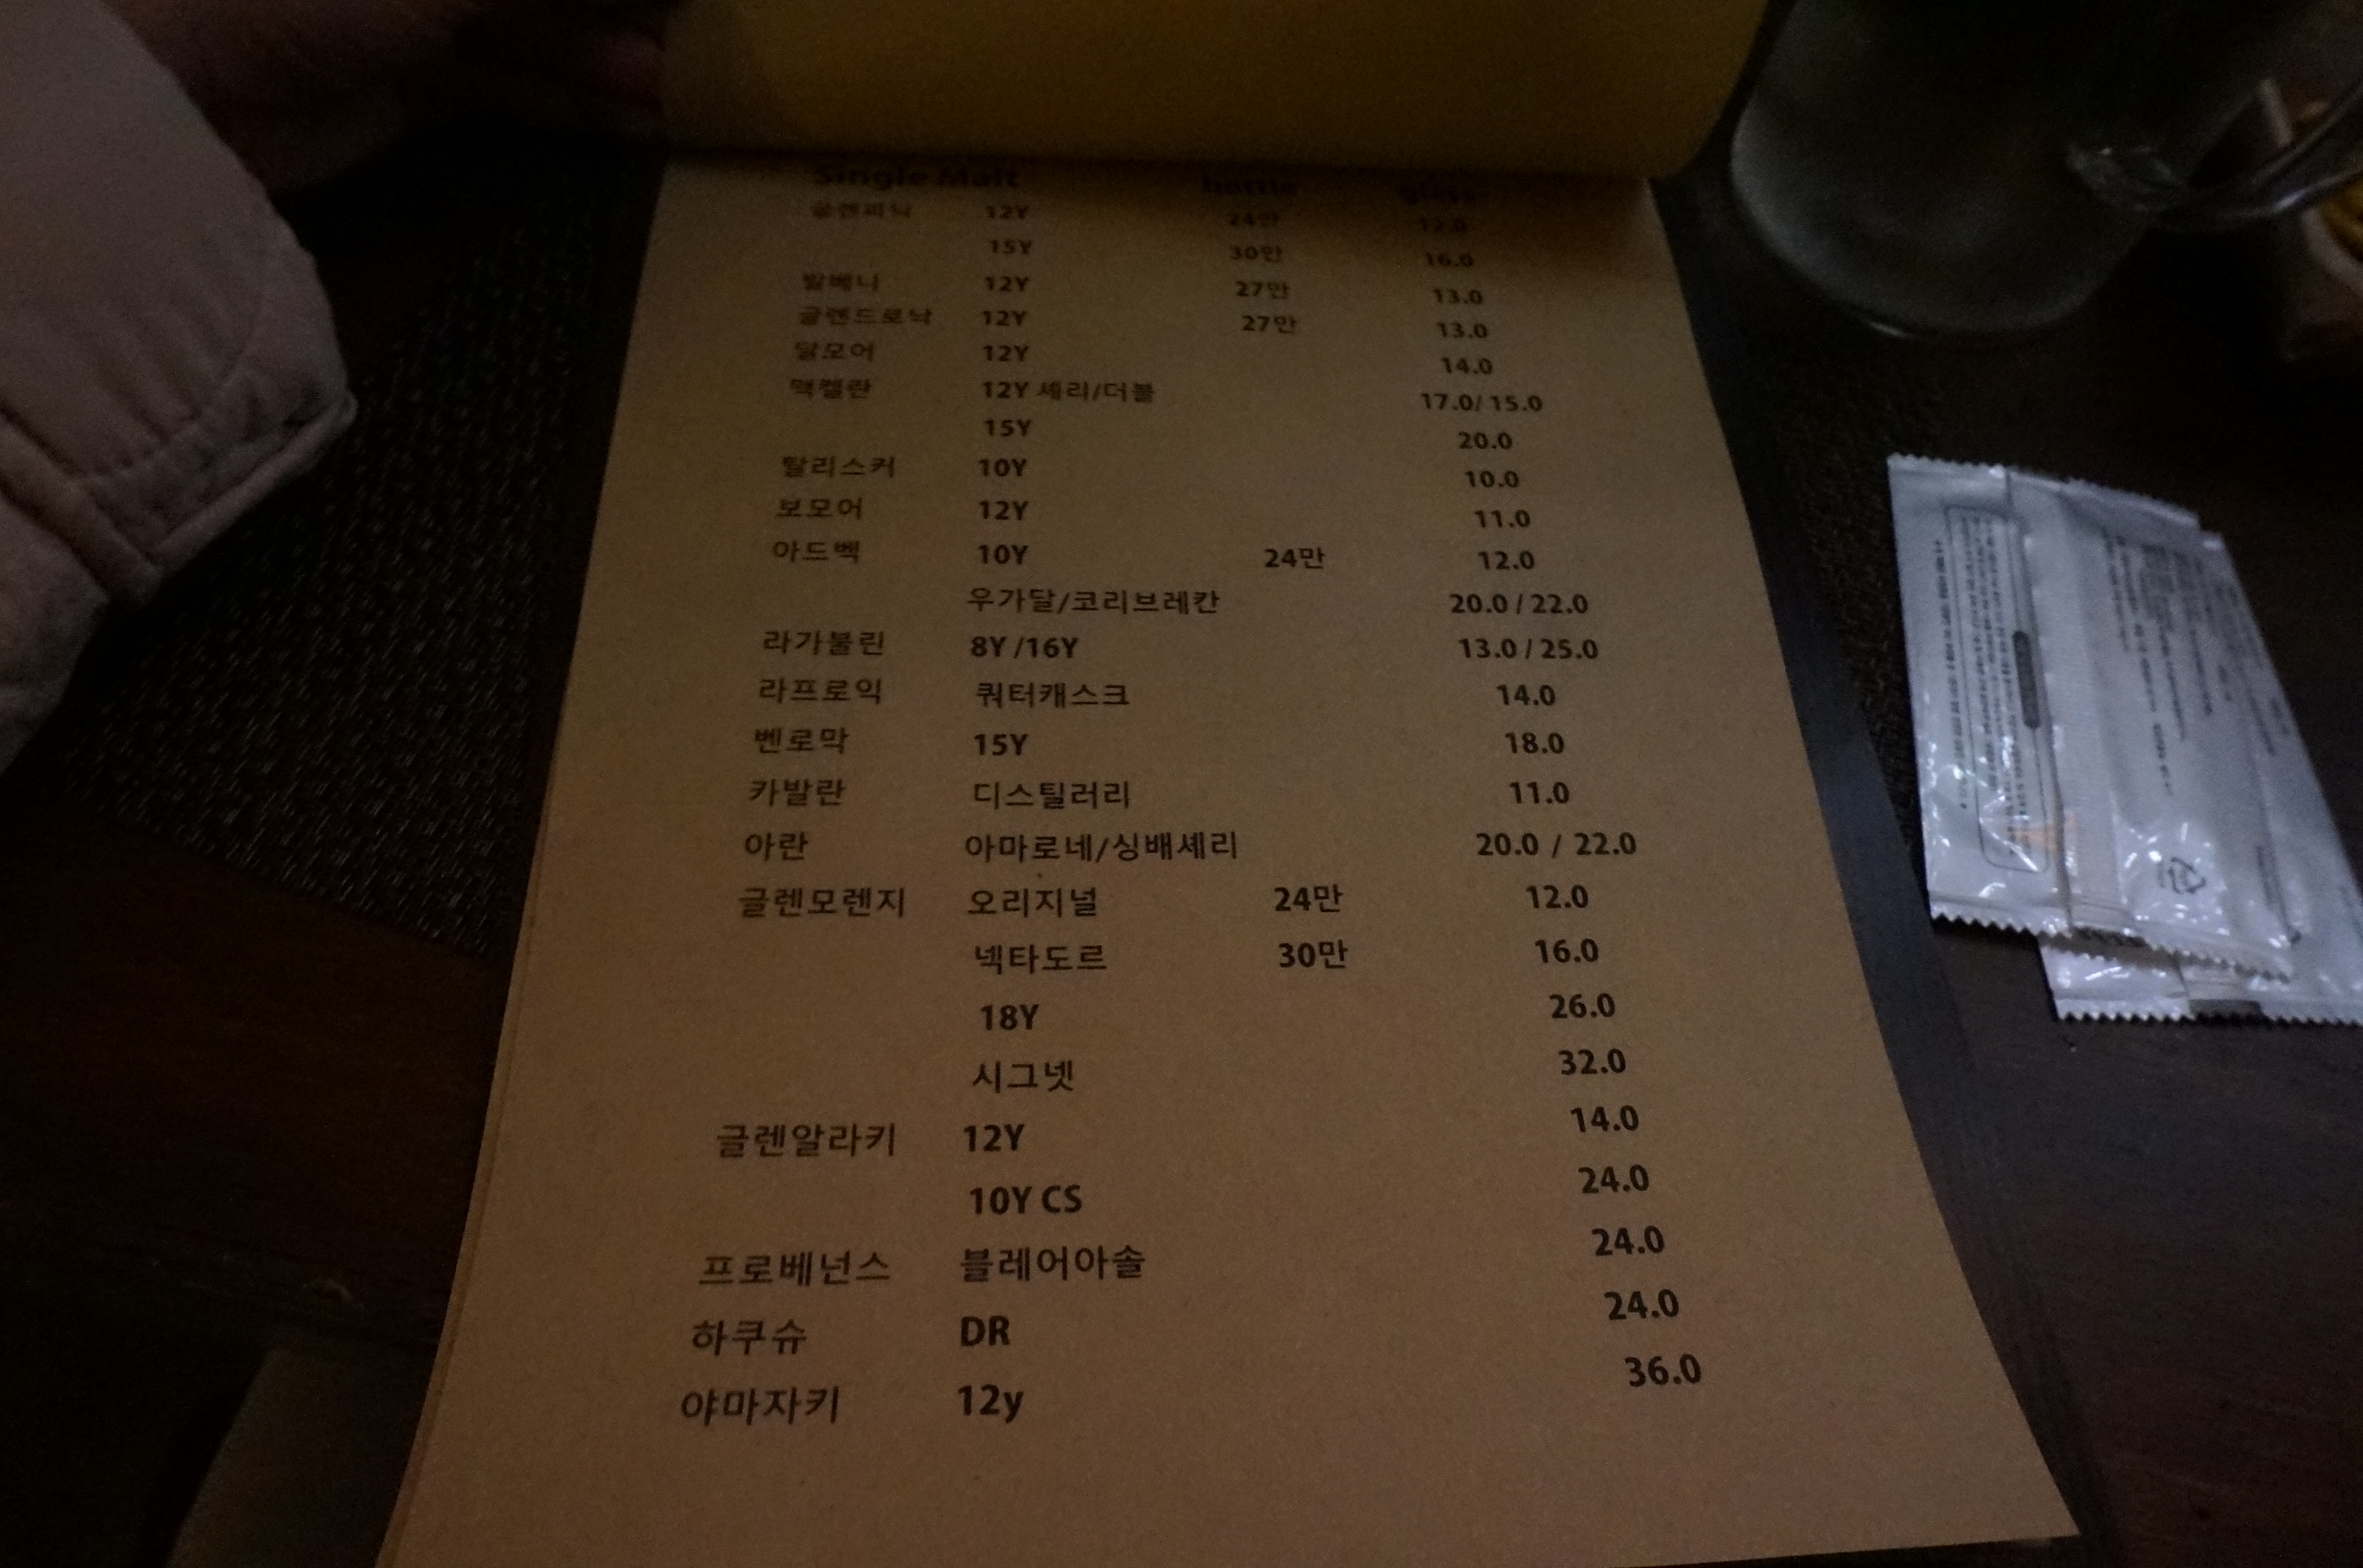 Single Malt bottle glass
글렌피딕 12Y 24만 12.0
15Y 30만 16.0
발베니 12Y 27만 13.0
글렌드로낙 12Y 27만 13.0
달모어 12Y 14.0
맥켈란 12Y 셰리/더블 17.0/ 15.0
15Y 20.0
탈리스커 10Y 10.0
보모어 12Y 11.0
아드벡 10Y 24만 12.0
우가달/코리브레칸 20.0 / 22.0
라가불린 8Y /16Y 13.0 / 25.0
라프로익 쿼터캐스크 14.0
벤로막 15Y 18.0
카발란 디스틸러리 11.0
아란 아마로네/싱배셰리 20.0 / 22.0
글렌모렌지 오리지널 24만 12.0
넥타도르 30만 16.0
18Y 26.0
시그넷 32.0
글렌알라키 12Y 14.0
10Y CS 24.0
프로베넌스 블레어아솔 24.0
하쿠슈 DR 24.0
야마자키 12y 36.0